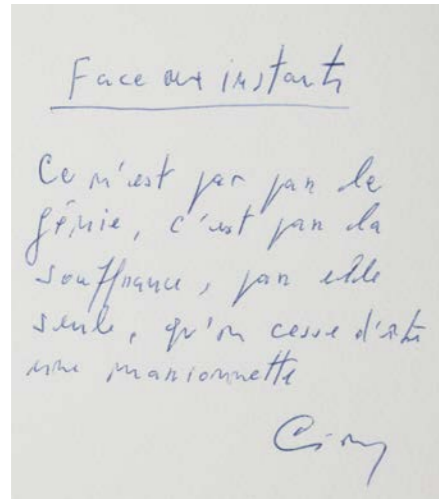 Face aux instants
Ce n'est pas par le
génie, c'est par la
souffrance, par elle
seule, qu'on cesse d'être
une marionnette
Cioran